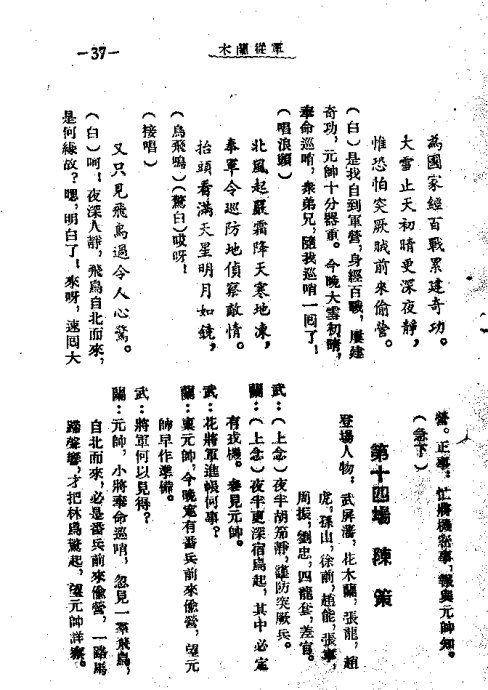 木蘭從軍
—37—
為國家經百戰累建奇功。
大雪止天初晴更深夜靜，
惟恐怕突厥賊前來偷營。
（白）是我自到軍營，身經百戰，屢建
奇功，元帥十分器重。今晚大雪初晴，
奉命巡哨，衆弟兄，隨我巡哨一囘了！
（唱浪頭）
北風起嚴霜降天寒地凍，
奉軍令巡防地偵察敵情。
抬頭看滿天星明月如鏡，
（鳥飛鳴）（驚白）哎呀！
（接唱）
又只見飛鳥過令人心驚。
（白）呵！夜深人靜，飛鳥自北而來，
是何緣故？嗯，明白了！來呀，速囘大
營。正事：忙將機密事，報與元帥知。
（急下）
第十四場　陳策
登場人物：武屏藩，花木蘭，張龍，趙
虎，孫山，徐前，趙能，張事，
周振，劉忠，四龍套，差官。
武：（上念）夜半胡笳靜，謹防突厥兵。
蘭：（上念）夜半更深宿鳥起，其中必定
有戎機。參見元帥。
武：花將軍進帳何事？
蘭：稟元帥，今晚定有番兵前來偷營，望元
帥早作準備。
武：將軍何以見得？
蘭：元帥，小將奉命巡哨，忽見一羣飛鳥，
自北而來，必是番兵前來偷營，一路馬
蹄聲響，才把林鳥驚起，望元帥詳察。